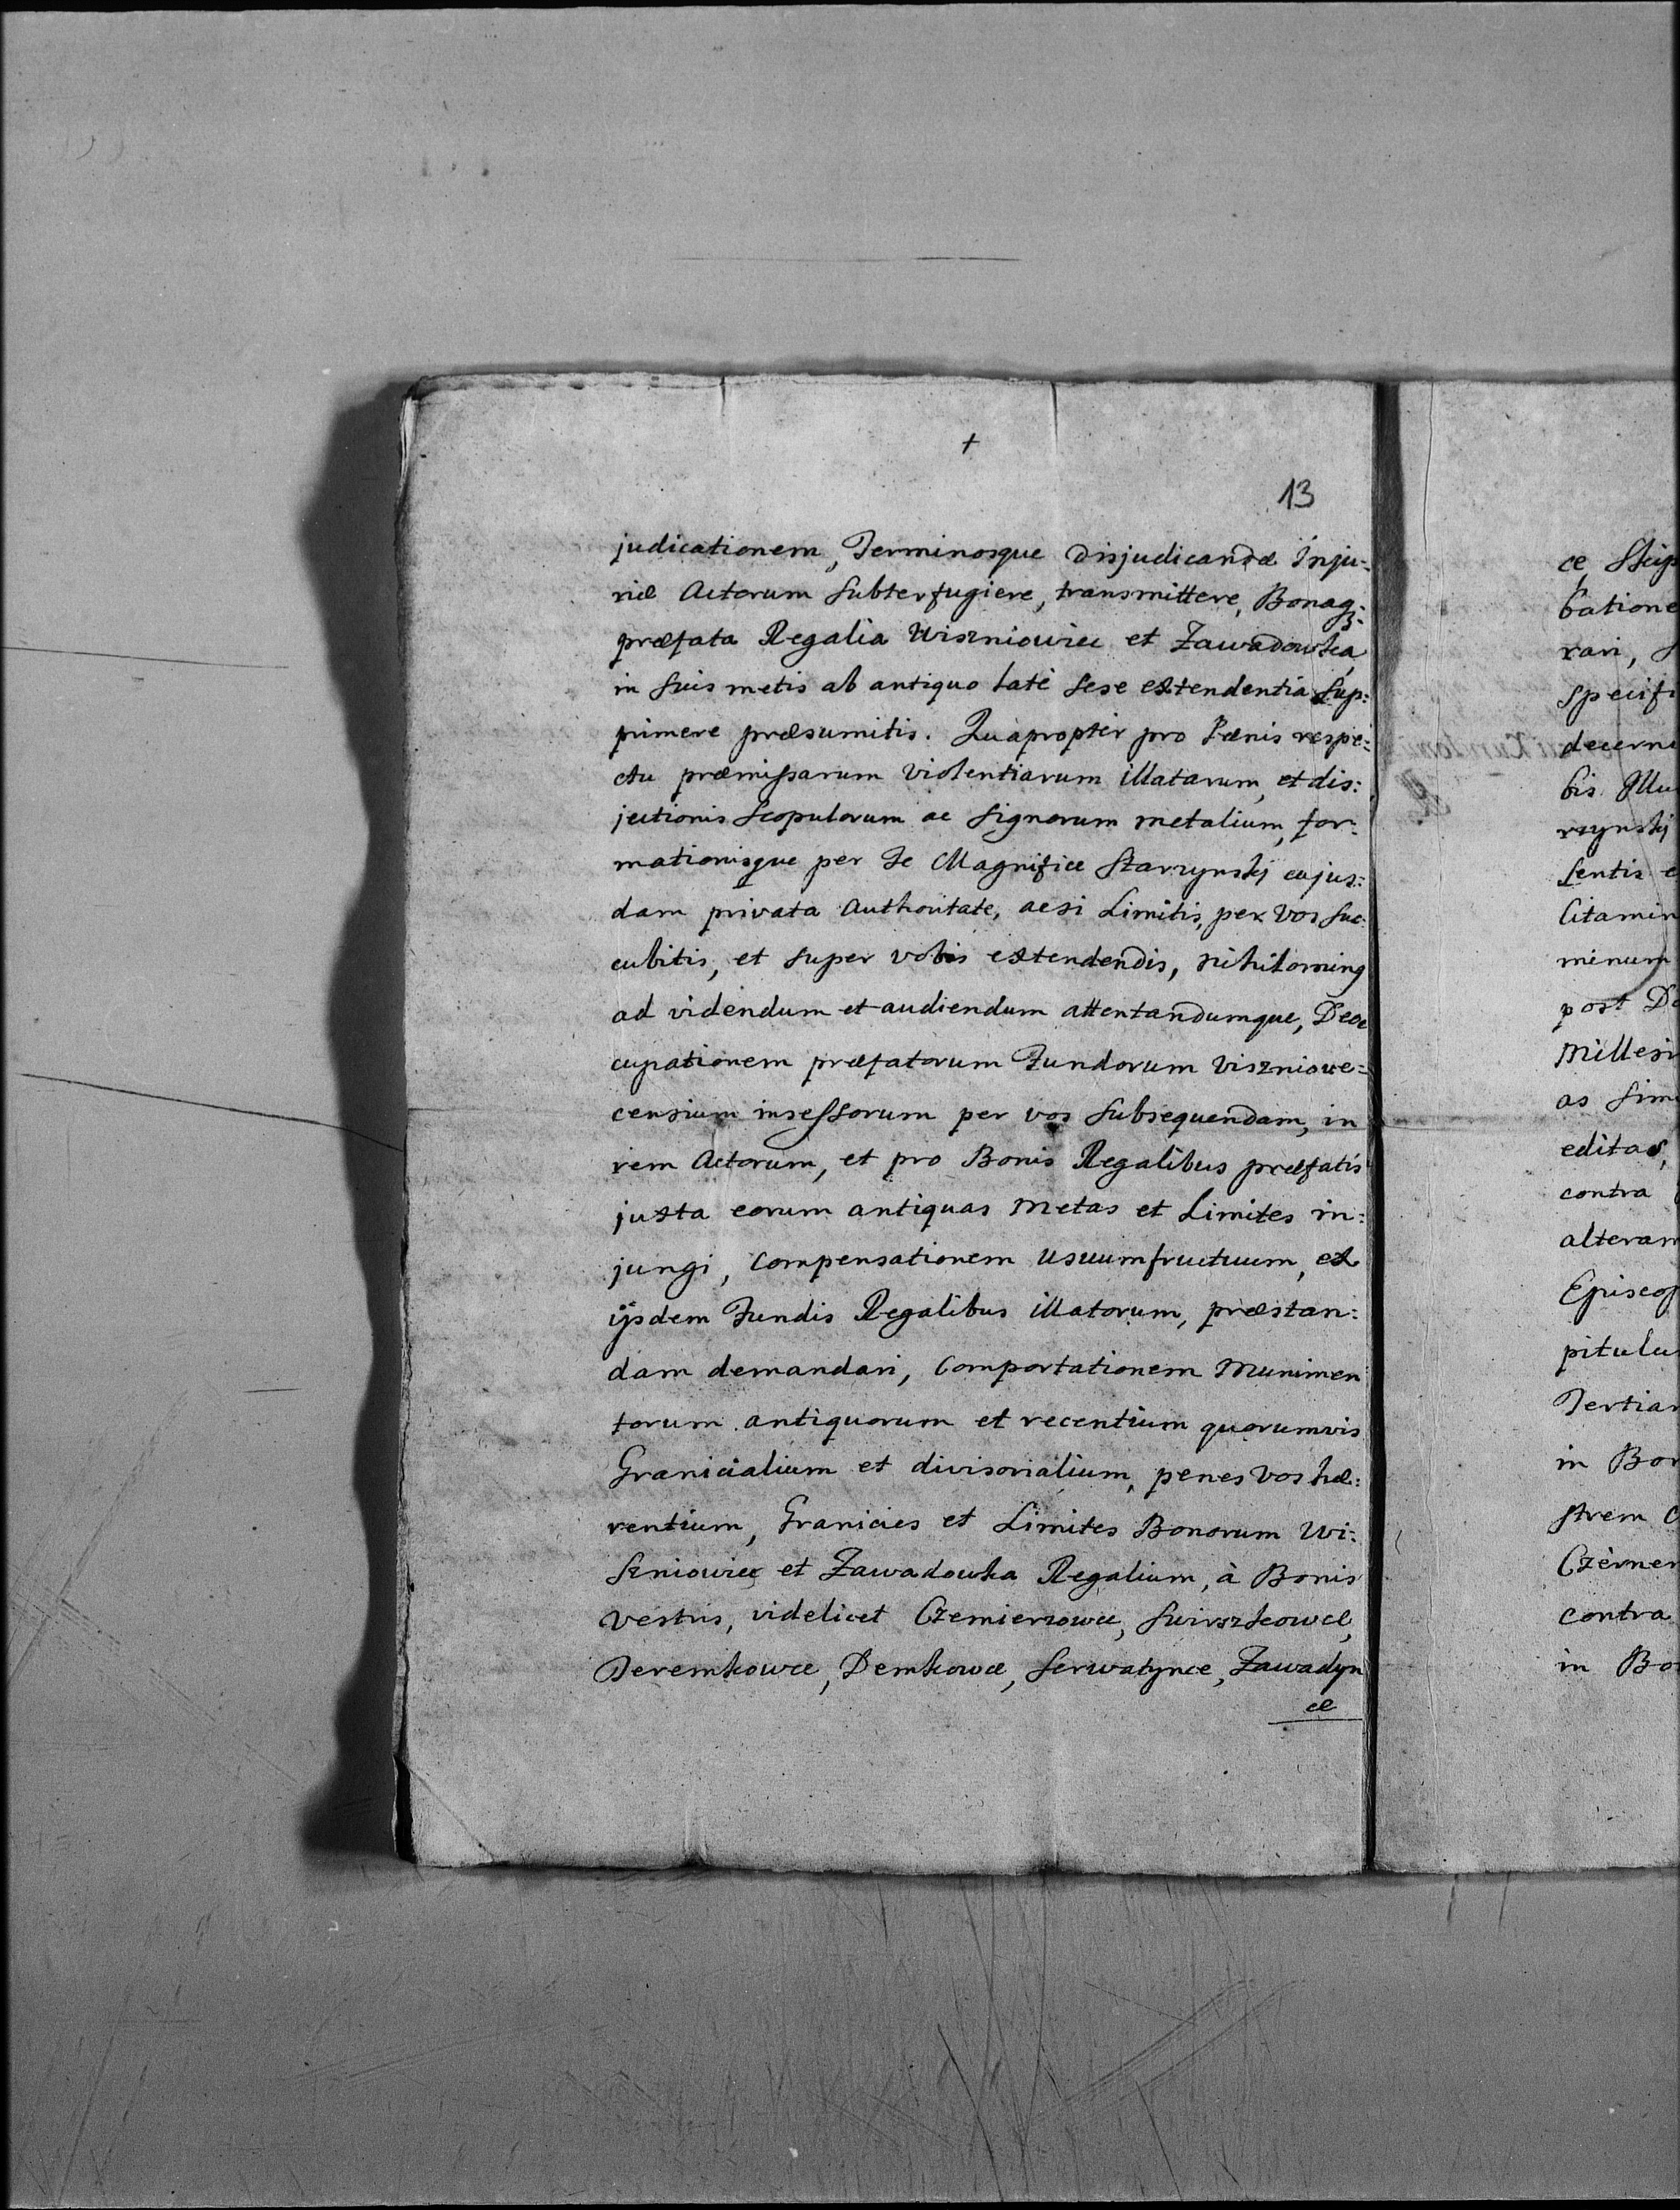 +
13
judicationem, Terminosque disjudicandæ Inju:
riæ Actorum subterfugiere, transmittere, Bonaq3:
præfata Regalia Wiszniowiec et Zawadowka,
in suis metis ab antiquo laté sese extendentia sup:
primere præsumitis. Quapropter pro Pœnis respe:
ctu præmissarum violentiarum illatarum, et dis:
jectionis scopulorum ac signorum metalium, for:
mationisque per Te Magnifice Starzynskj cujus:
dam privata Authoritate, acsi Limitis, per Vos suc:
cubitis, et super vobis extendendis, nihilominq
ad videndum et audiendum attentandumque, Deoc
cupationem præfatorum Fundorum Viszniowe:
censium insessorum per vos subsequendam, in
rem Actorum, et pro Bonis Regalibus præfatis
juxta eorum antiquas Metas et Limites in:
jungi, Compensationem usuumfructuum, ex
ijsdem Fundis Regalibus illatorum, præstan:
dam demandari, Comportationem Munimen
torum antiquorum et recentium quorumvis
Granicialium et divisorialium, penes Vos hæ:
rentium, Granicies et Limites Bonorum Wi:
szniowiec et Zawadowka Regalium, à Bonis
Vestris, videlicet Czemierzowce, Swirszkowce,
Deremkowce, Demkowce, Serwatynce, Zawadyn
ce
ce
batione
rari,
specifi
decerne
bis Illu
rzynskj
sentis
Citamin
minum
post Do
Millesi
as
editas,
contra
alteram
Episcop
pitulu
Tertiam
in Bon
strem
Czerner
contra
in Bo